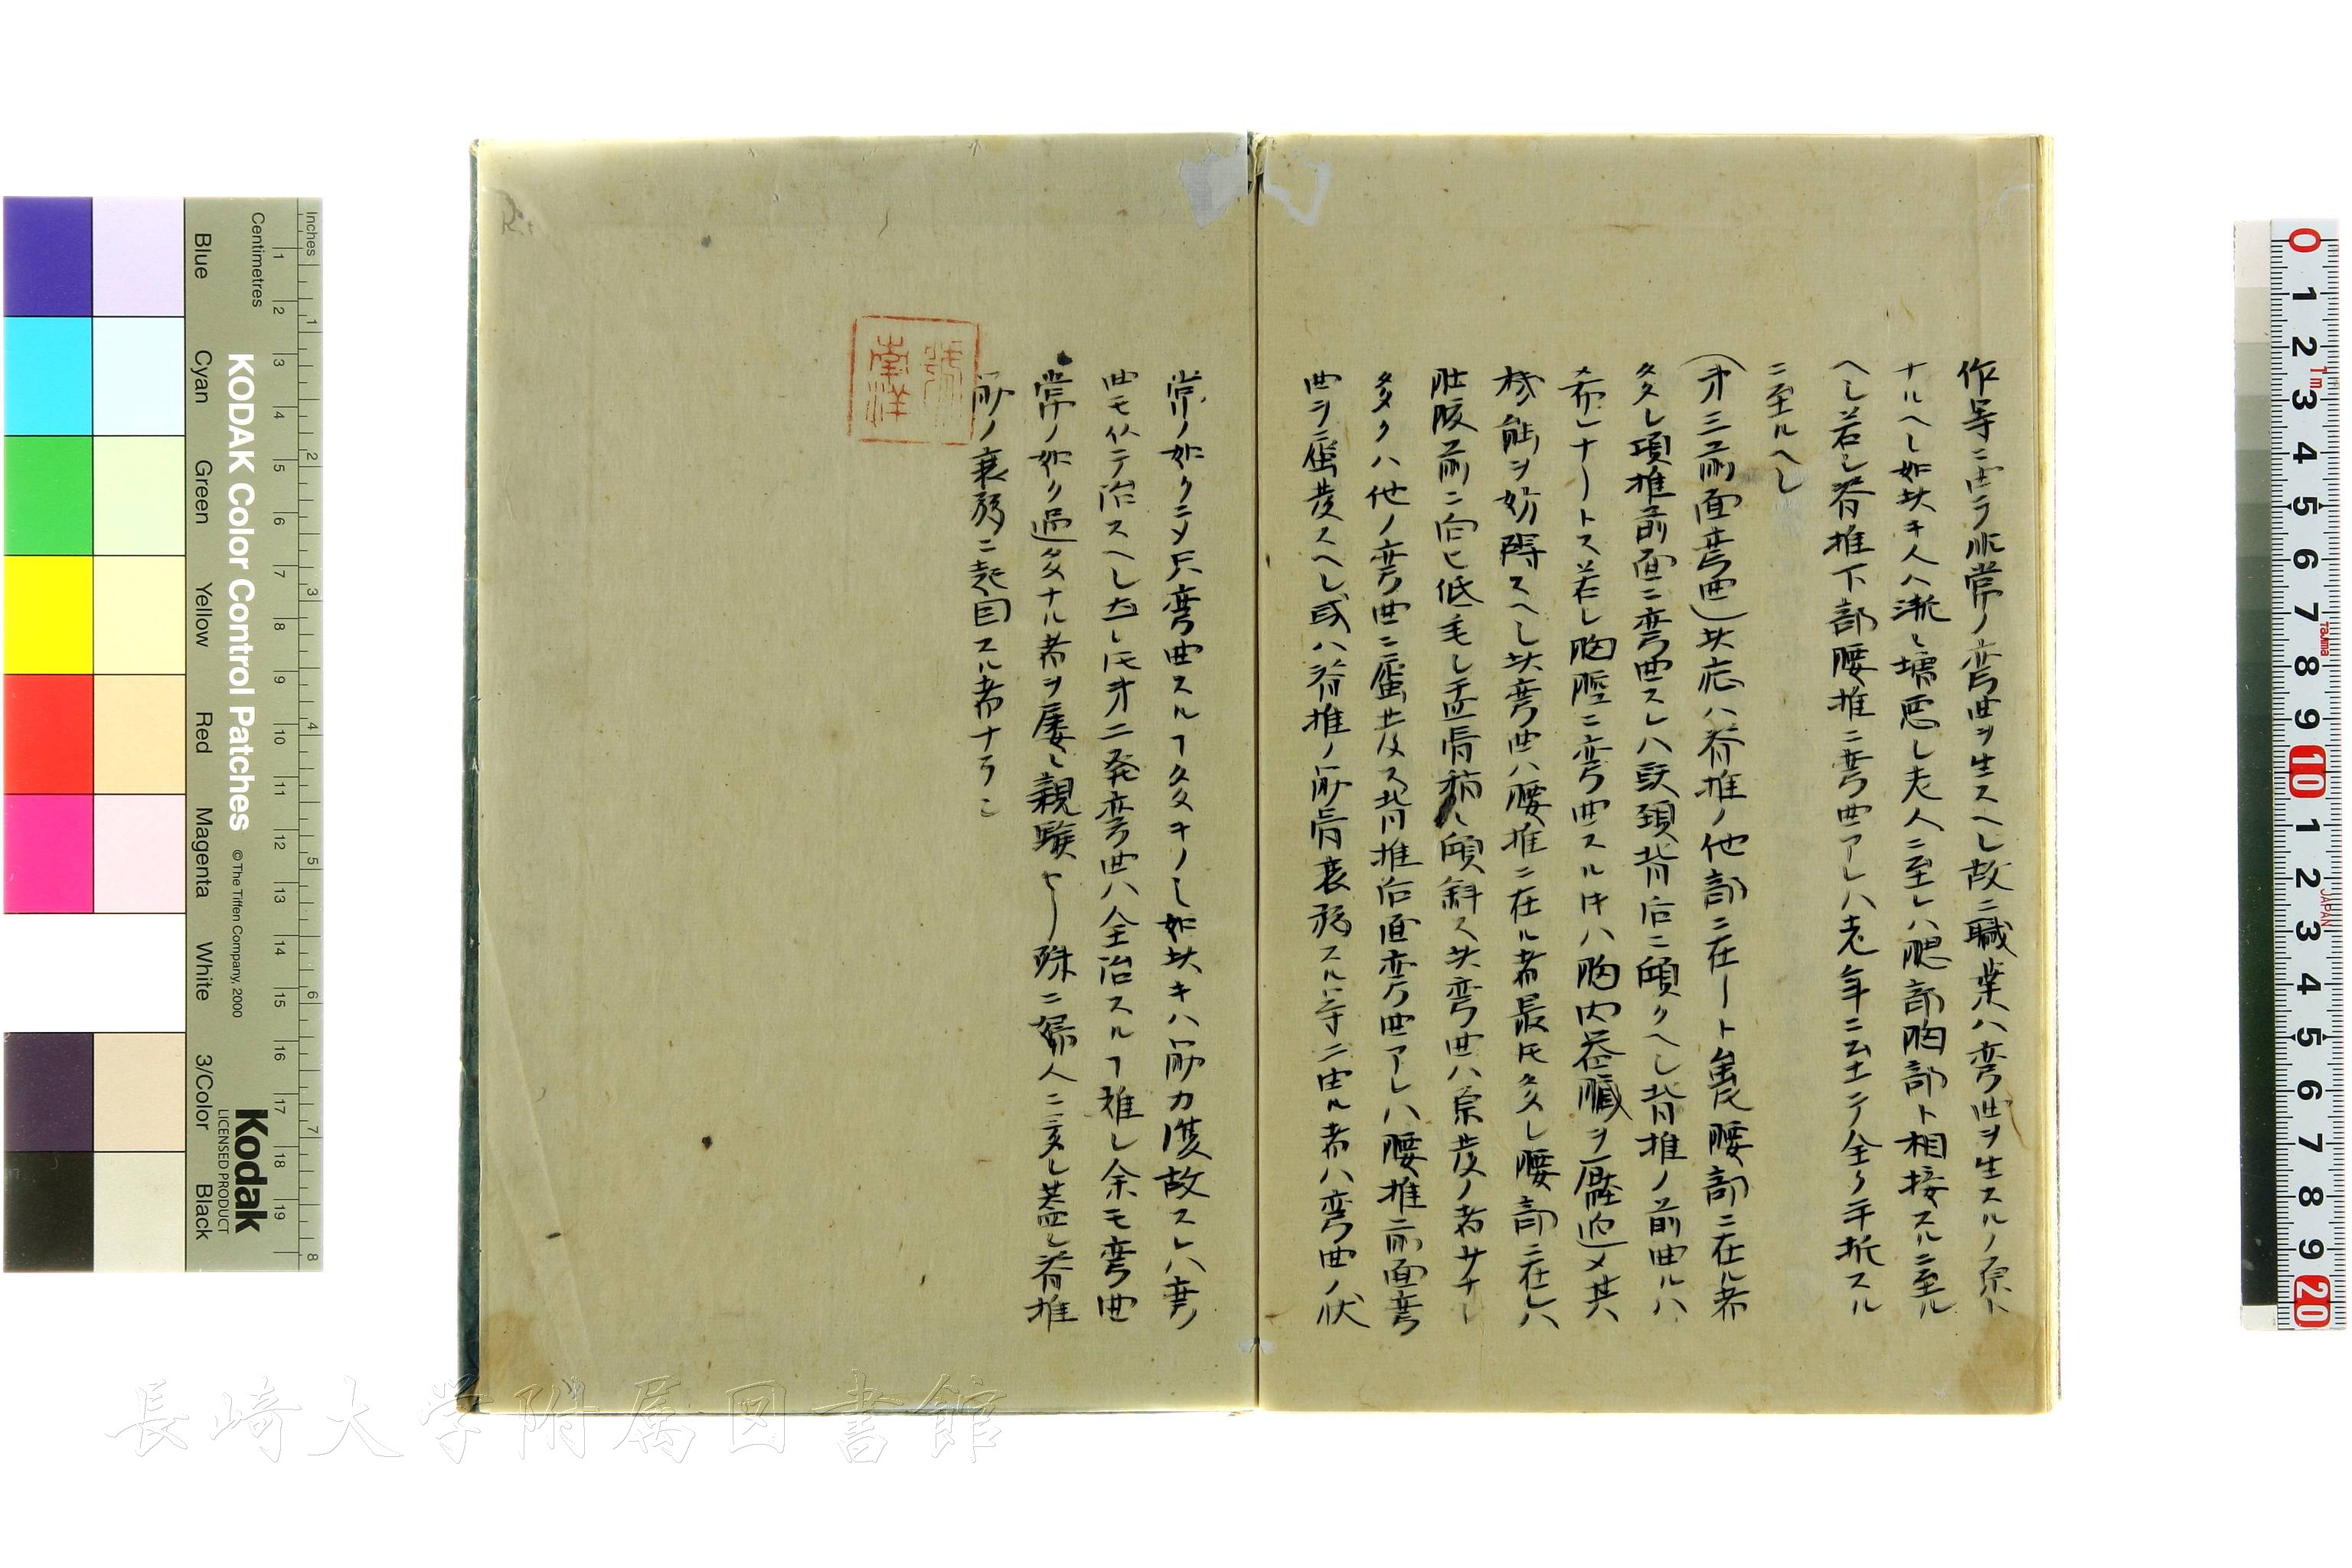 作等ニ由テ非常ノ弯曲ヲ生スヘし故ニ職業ハ弯曲ヲ生スルノ原ト
ナルヘし如此キ人ハ漸々増悪し老人ニ至レハ腮部胸部ト相接スルニ至ル
ヘし若し脊椎下部腰椎ニ弯曲アレハ老年ニ至テ全ク平折スル
ニ至ルヘし
(才三前面弯曲)此症ハ脊椎ノ他部ニ在ート雖𪜈腰部ニ在ル者
多し項椎前面ニ弯曲スレハ頭頚背后ニ傾クヘし背椎ノ前曲ルハ
希レナートス若し胸腔ニ弯曲スルキハ胸内器臓ヲ壓迫メ其
機能ヲ妨碍スヘし此弯曲ハ腰椎ニ在ル者最モ多し腰部ニ在レハ
肚腹前ニ向ヒ低垂し盂骨稍々傾斜ス此弯曲ハ原発ノ者サチし
多クハ他ノ弯曲ニ継発ス背椎后面弯曲アレハ腰椎ニ前面弯
曲ヲ継発スヘし或ハ脊椎ノ筋骨衰弱スル等ニ由ル者ハ弯曲ノ状
常ノ如クニメ只弯曲スルヿ多キノミ如此キハ筋力復故スレハ弯
曲モ仍テ治スヘし然レ𪜈才二発弯曲ハ全治スルヿ難し余モ弯曲
常ノ如ク過多ナル者ヲ屡々親験セリ殊ニ婦人ニ多し蓋し脊椎
筋ノ衰弱ニ起因スル者ナラン
KODAK Color Control Patches
© The Tiffen Company, 2000
Kodak
LICENSED PRODUCT
Inches
Centimetres
Blue
Cyan
Green
Yellow
Red
Magenta
White
3/Color
Black
長崎大学附属図書館